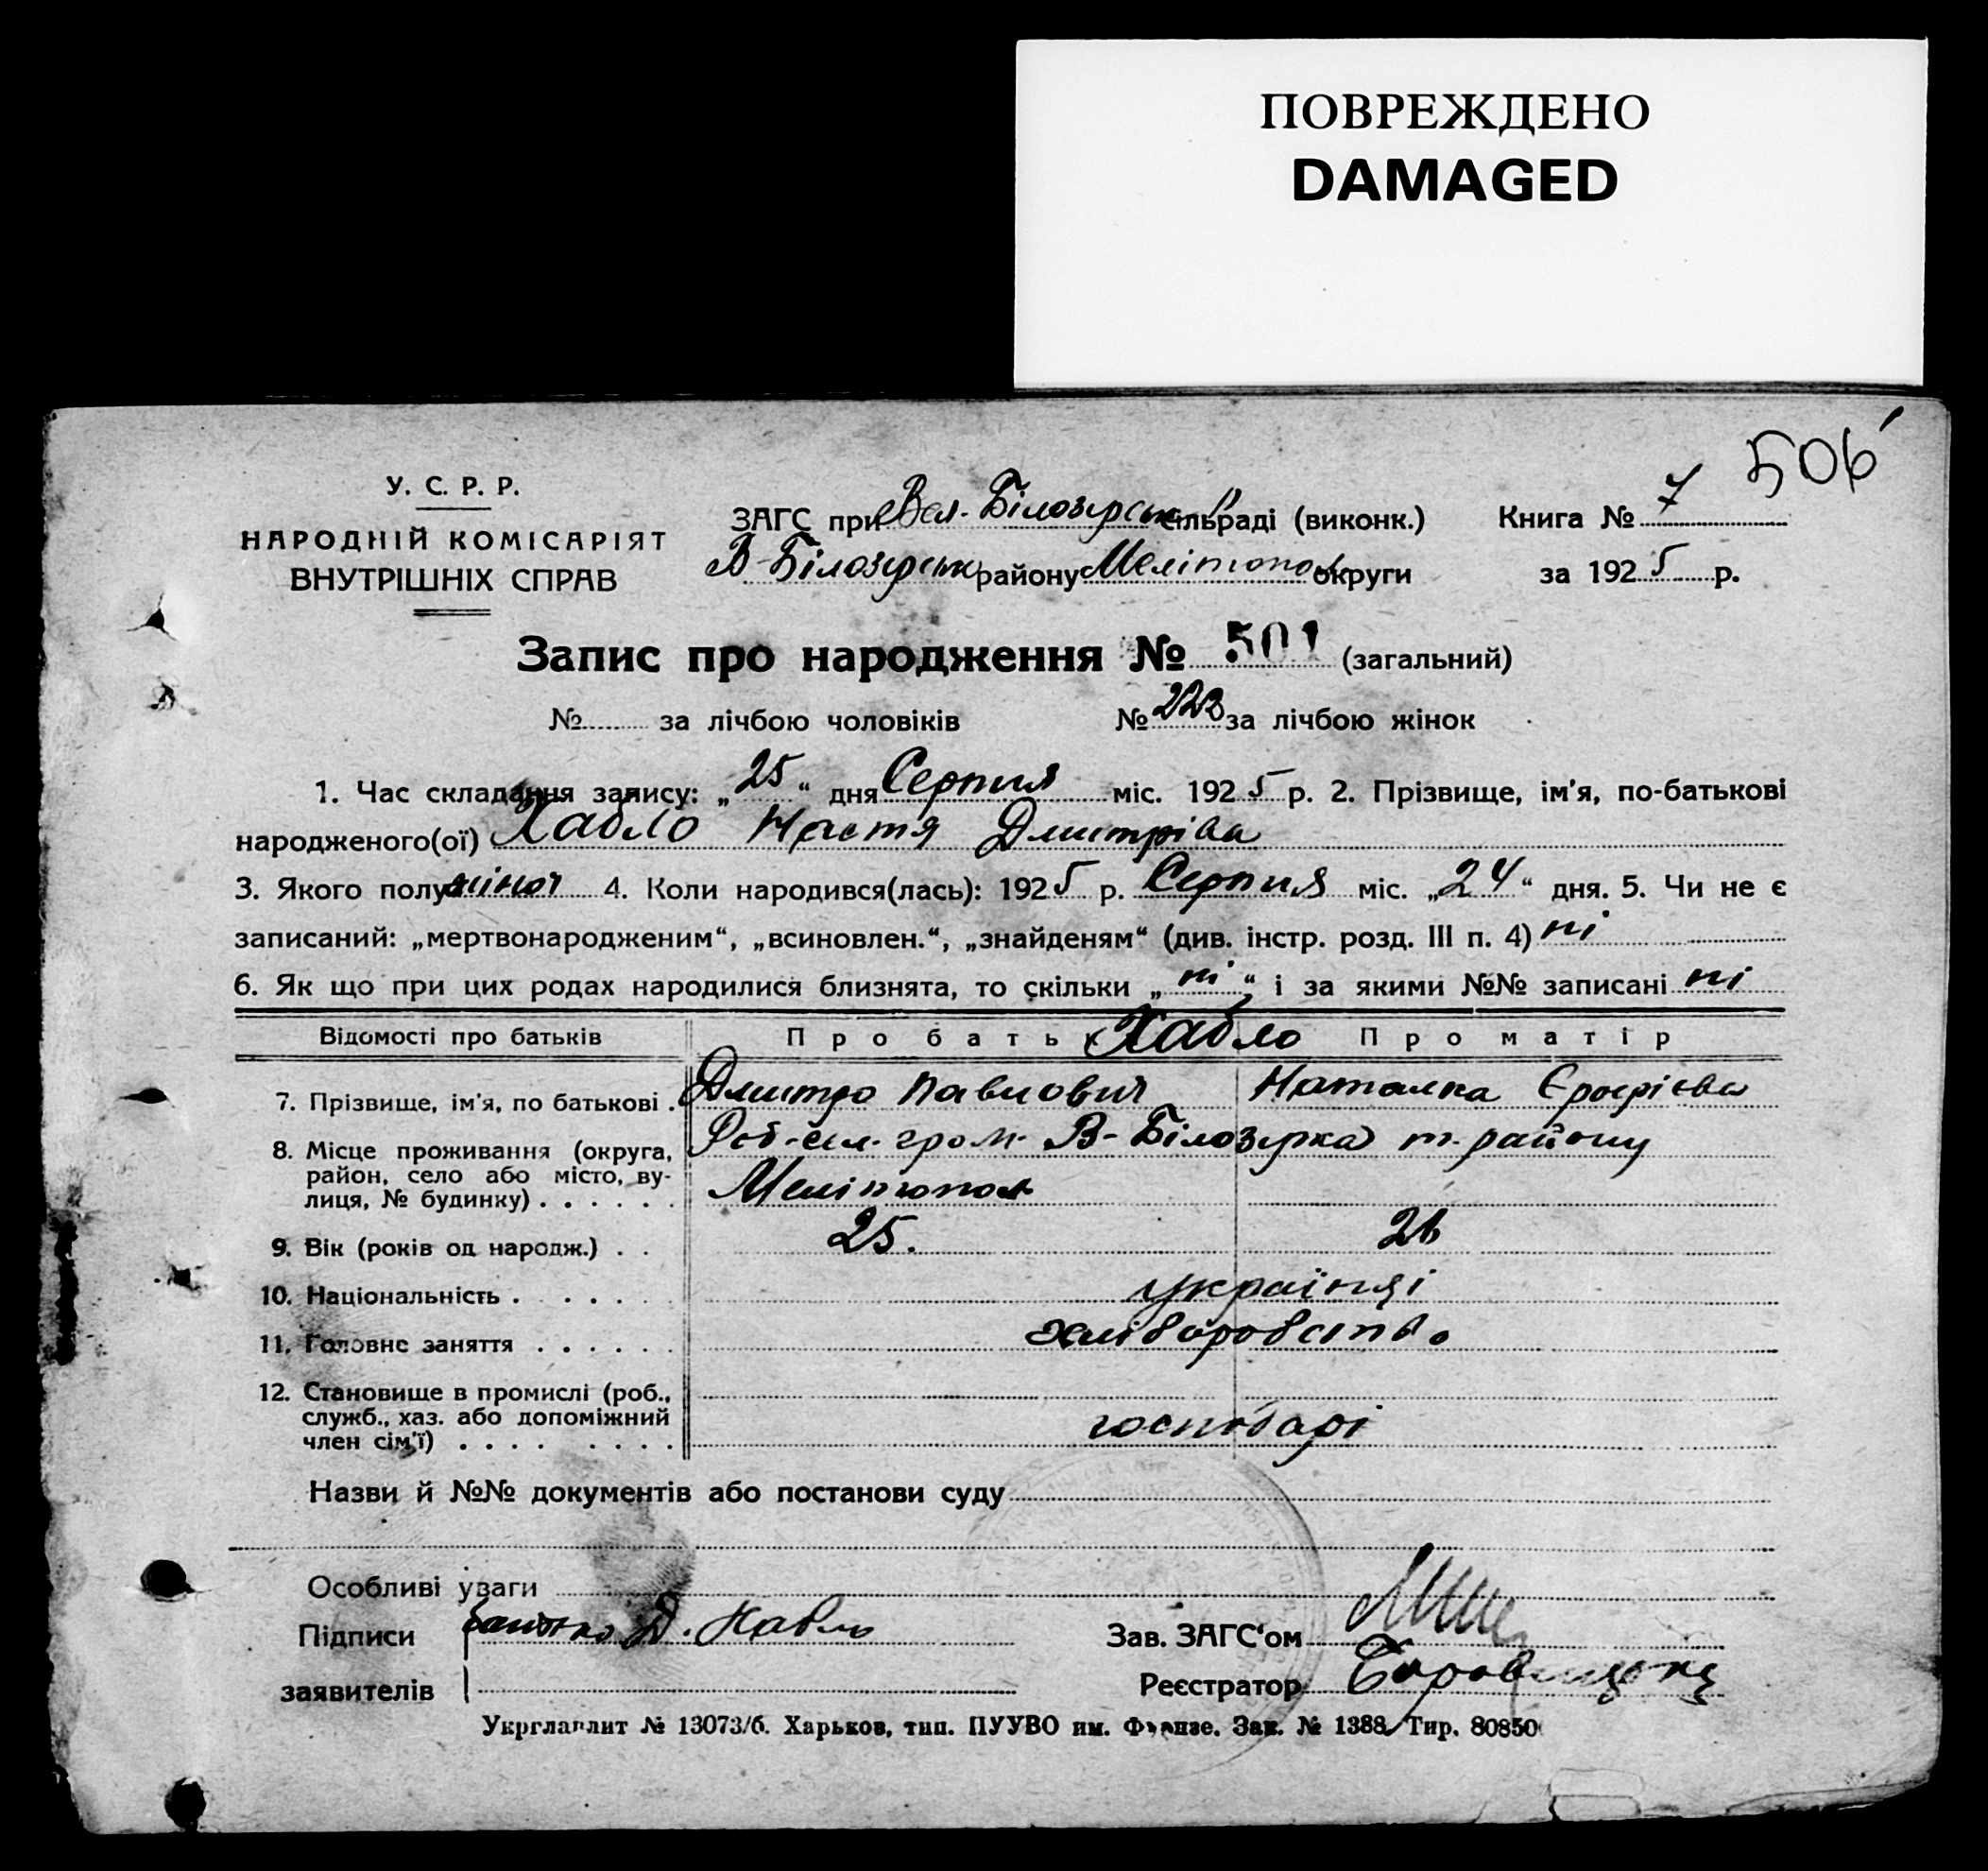 ПОВРЕЖДЕНО
DAMAGED
506
У. С. Р. Р.
НАРОДНІЙ КОМІСАРІЯТ
ВНУТРІШНІХ СПРАВ
ЗАГС при Вел. Білозерськ сільраді (виконк.)
В-Білозерськ району Мелітопол округи
Книга № 7
за 1925 р.
Запис про народження № 501 (загальний)
№ за лічбою чоловіків № 223 за лічбою жінок
1. Час складання запису: „25“ дня Серпня міс. 1925 р. 2. Прізвище, ім'я, по-батькові
народженого(ої) Хабло Настя Дмитрівна
3. Якого полу жіноч 4. Коли народився(лась): 1925 р. Серпня міс. „24“ дня. 5. Чи не є
записаний: „мертвонародженим“, „всиновлен.“, „знайденям“ (див. інстр. розд. III п. 4) ні
6. Як що при цих родах народилися близнята, то скільки „ні“ і за якими №№ записані ні
Відомості про батьків Про батьк Хабло Про матір
7. Прізвище, ім'я, по батькові . Дмитро Павлович Наталка Єрофієва
8. Місце проживання (округа, район, село або місто, вулиця, № будинку) . . . . . . Роб-сел. гром. В-Білозірка т. району
Мелітопол
9. Вік (років од народж.) . . 25. 26
10. Національність . . . . . українці
11. Головне заняття . . . . . . хліборобство
12. Становище в промислі (роб., служб., хаз. або допоміжний член сім'ї) . . . . . . . . господарі
Назви й №№ документів або постанови суду
Особливі уваги
Підписи батько Д. Хабло
заявителів
Зав. ЗАГС'ом
Реєстратор
Укрглавлит № 13073/б. Харьков, тип. ПУУВО им. Фрунзе. Зак. № 1388 Тир. 80850